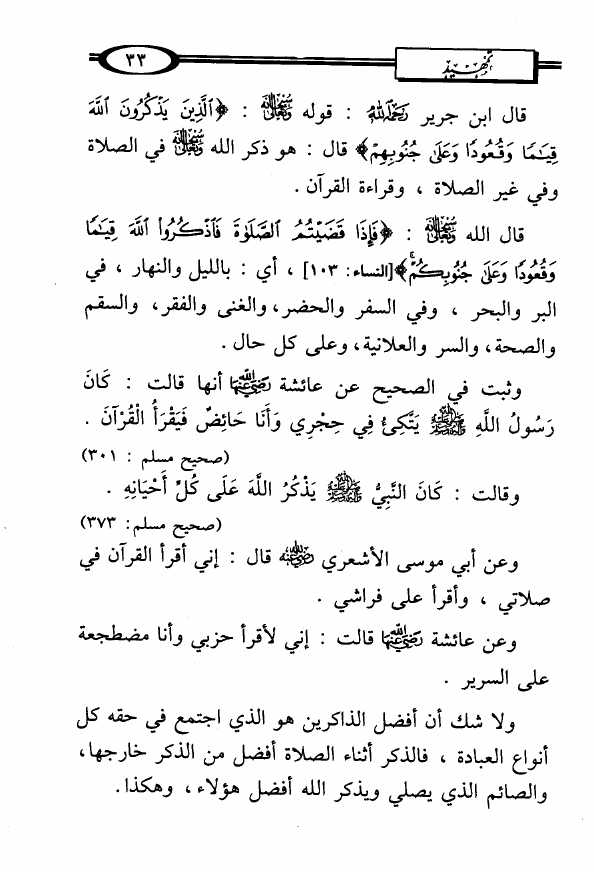 تمهيد
٣٣
قال ابن جرير رحمه الله : قوله سبحانه وتعالى : ﴿ٱلَّذِينَ يَذْكُرُونَ ٱللَّهَ
قِيَٰمًا وَقُعُودًا وَعَلَىٰ جُنُوبِهِمْ﴾ قال : هو ذكر الله سبحانه وتعالى في الصلاة
وفي غير الصلاة ، وقراءة القرآن .
قال الله سبحانه وتعالى : ﴿فَإِذَا قَضَيْتُمُ ٱلصَّلَوٰةَ فَٱذْكُرُوا۟ ٱللَّهَ قِيَٰمًا
وَقُعُودًا وَعَلَىٰ جُنُوبِكُمْ ۚ﴾[النساء: ١٠٣] ، أي : بالليل والنهار ، في
البر والبحر ، وفي السفر والحضر، والغنى والفقر، والسقم
والصحة، والسر والعلانية، وعلى كل حال .
وثبت في الصحيح عن عائشة رضي الله عنها أنها قالت : كَانَ
رَسُولُ اللَّهِ ﷺ يَتَّكِئُ فِي حِجْرِي وَأَنَا حَائِضٌ فَيَقْرَأُ الْقُرْآنَ .
(صحيح مسلم : ٣٠١)
وقالت : كَانَ النَّبِيُّ ﷺ يَذْكُرُ اللَّهَ عَلَى كُلِّ أَحْيَانِهِ .
(صحيح مسلم: ٣٧٣)
وعن أبي موسى الأشعري رضي الله عنه قال : إني أقرأ القرآن في
صلاتي ، وأقرأ على فراشي .
وعن عائشة رضي الله عنها قالت : إني لأقرأ حزبي وأنا مضطجعة
على السرير .
ولا شك أن أفضل الذاكرين هو الذي اجتمع في حقه كل
أنواع العبادة ، فالذكر أثناء الصلاة أفضل من الذكر خارجها،
والصائم الذي يصلي ويذكر الله أفضل هؤلاء ، وهكذا.